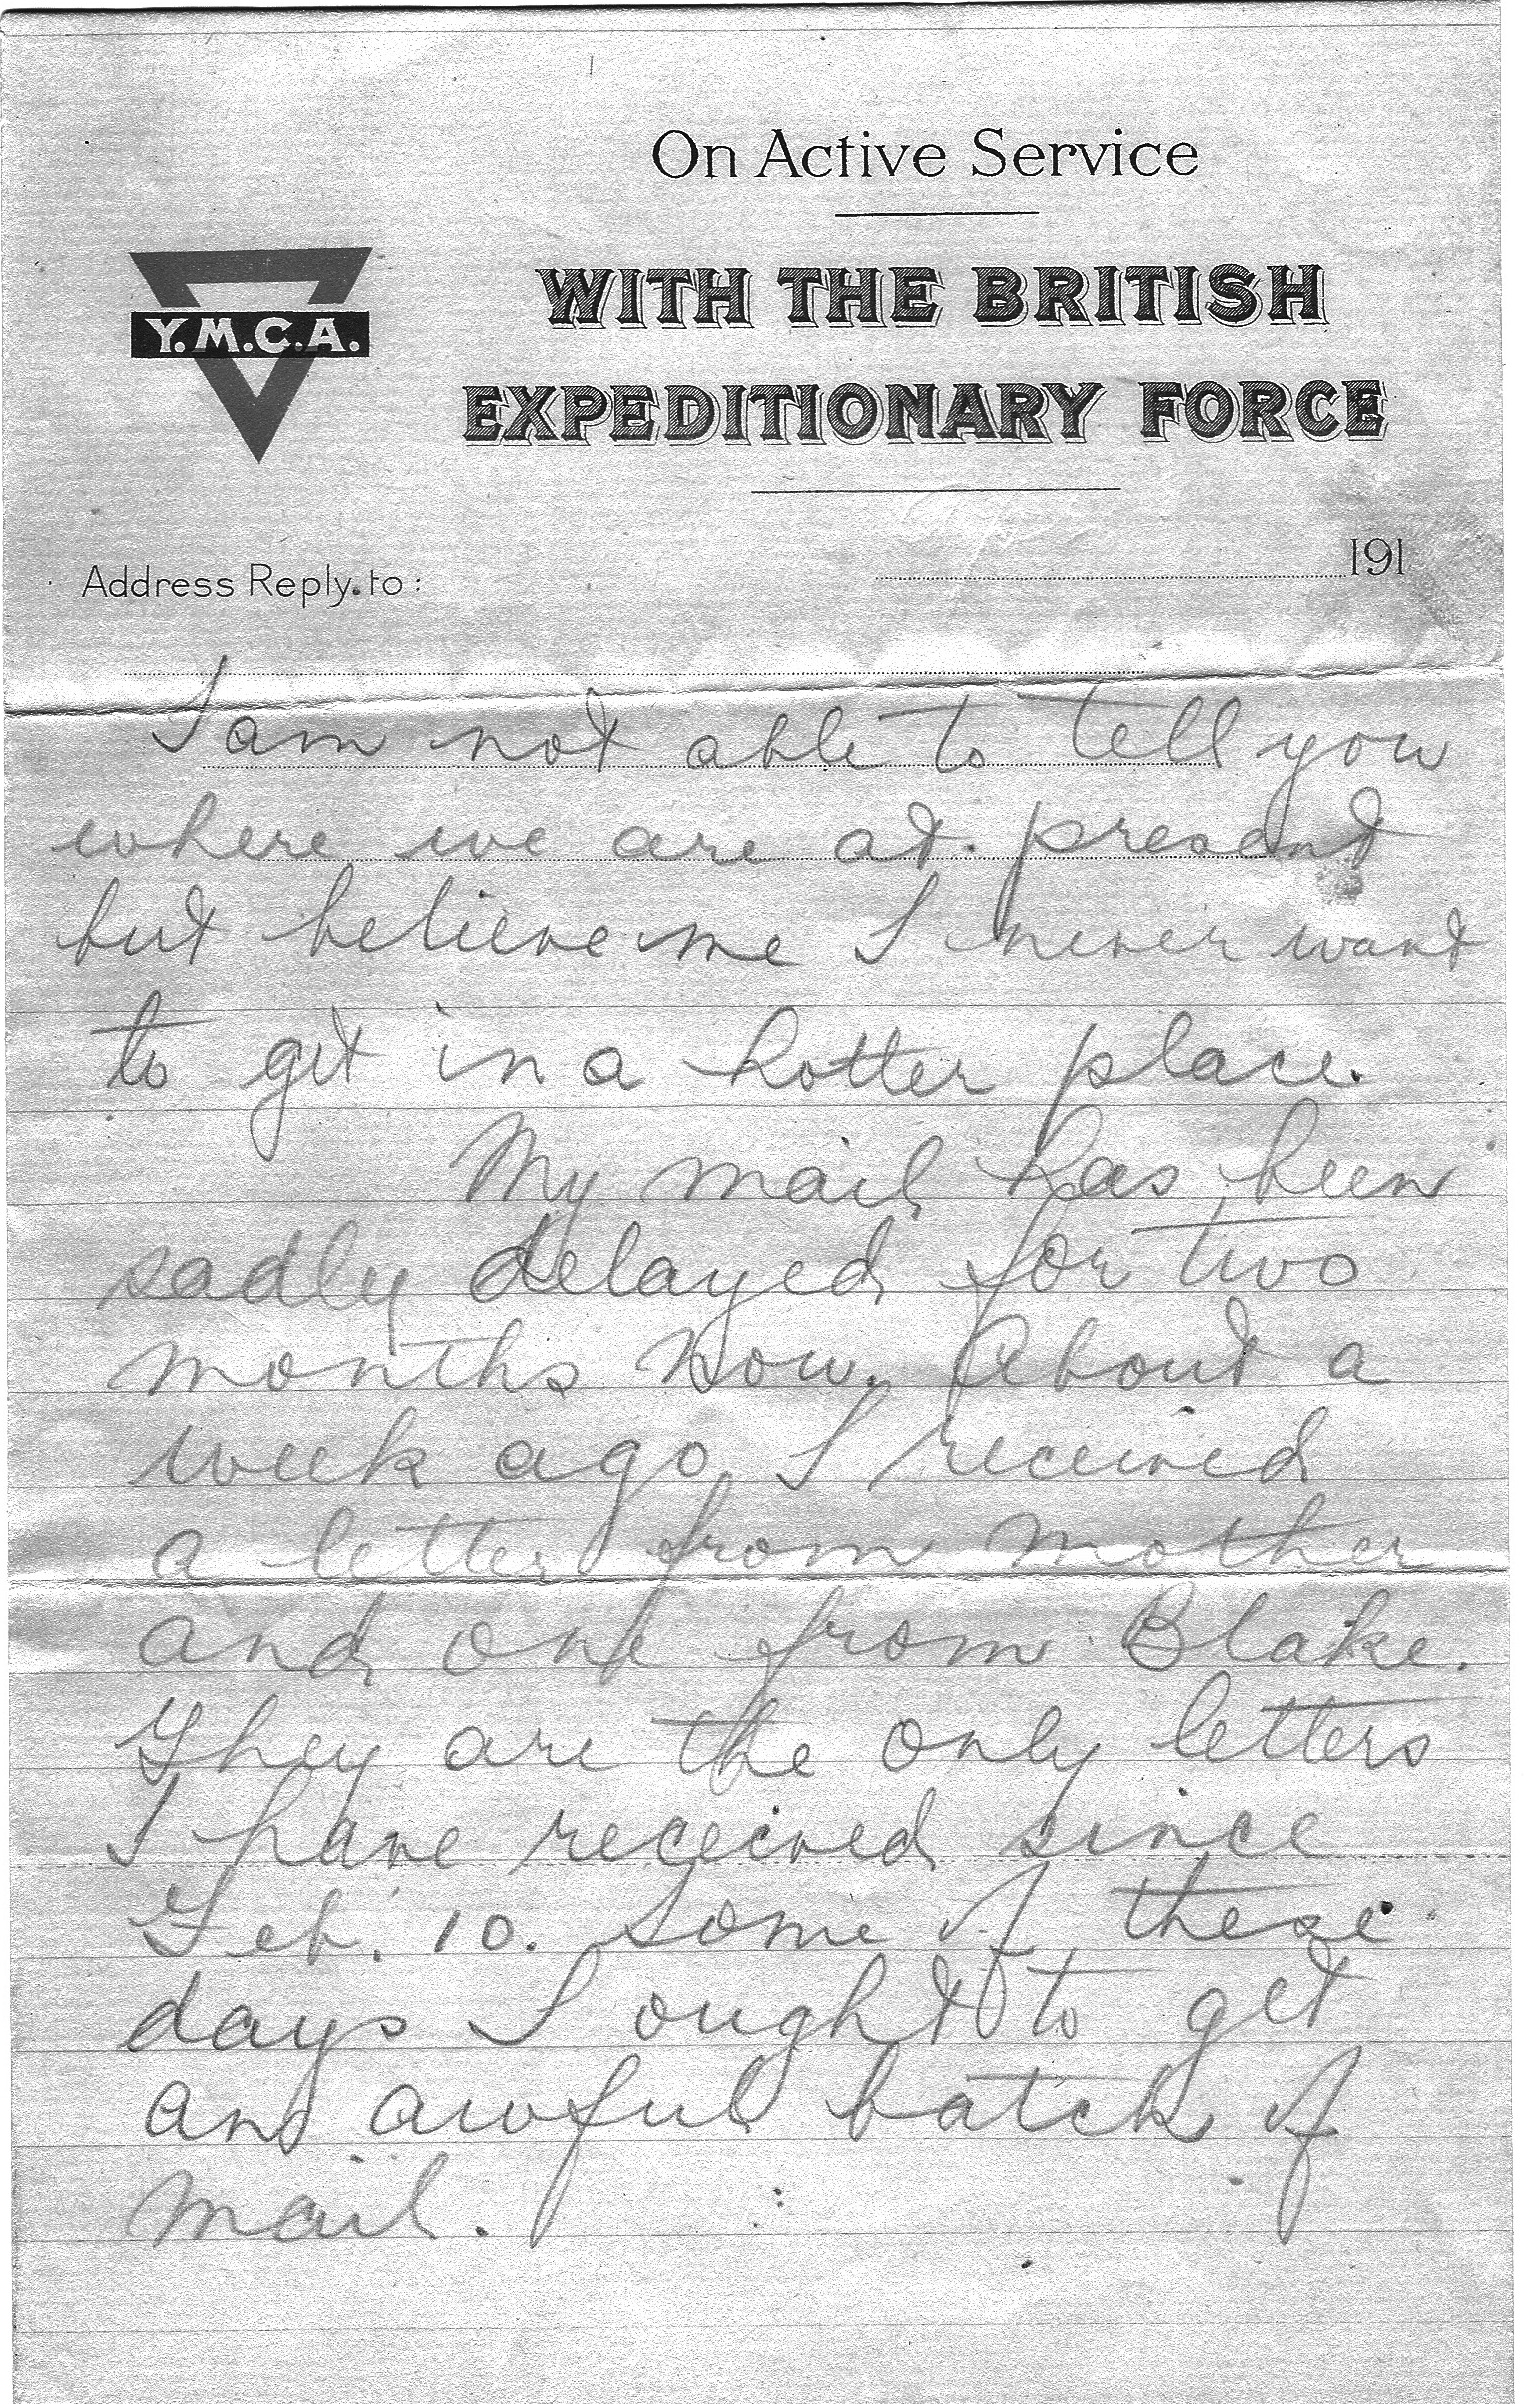 On Active Service
WITH THE BRITISH
Y.M.C.A.
EXPEDITIONARY FORCE
191
Address Reply to:
I am not able to tell you
where we are at present
but believe me I never want
to get in a hotter place.
My mail has been
sadly delayed for two
months now. About a
week ago I received
a letter from mother
and one from Blake.
They are the only letters
I have received since
Feb. 10. Some of these
days I ought to get
an awful batch of
mail.